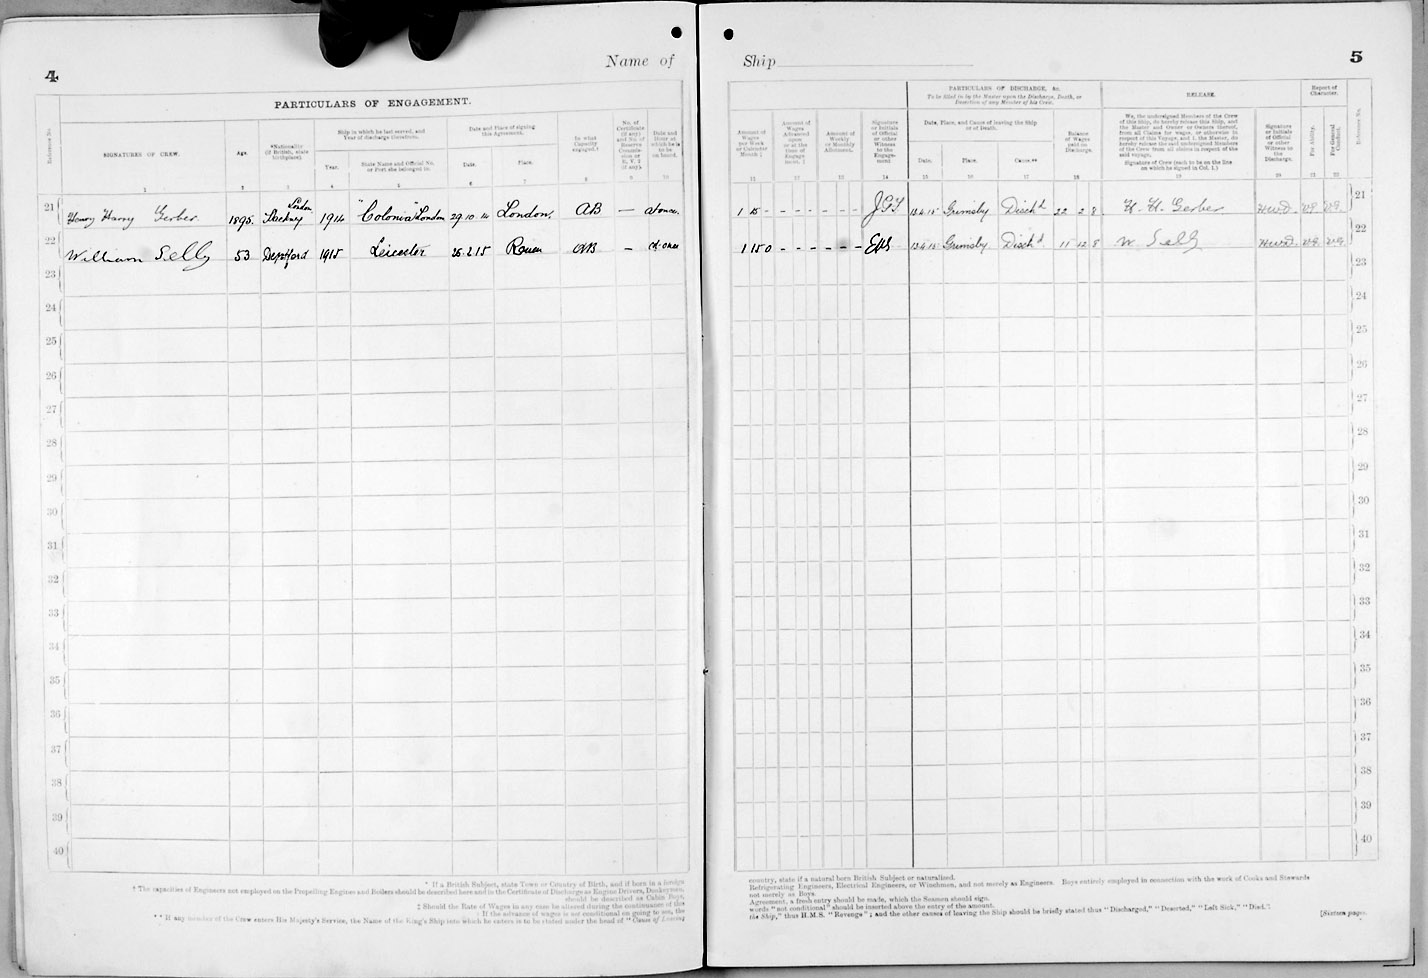 4
Name of
PARTICULARS OF ENGAGEMENT.
Reference No.
SIGNATURES OF CREW.
Age.
*Nationality
(If British, state
birthplace).
Ship in which he last served, and
Year of discharge therefrom.
Year.
State Name and Official No.
or Port she belonged to.
Date and Place of signing
this Agreement.
Date.
Place.
In what
Capacity
engaged.†
No. of
Certificate
(if any)
and No. of
Reserve
Commis-
sion or
R. V. 2
(if any).
Date and
Hour at
which he is
to be
on board.
1 2 3 4 5 6 7 8 9 10
21 Henry Harry Gerber. 1895. Hackney London 1914 "Colonia" London 29.10.14 London. AB — at once.
22 William Selly 53 Deptford 1915 Leicester 26.2.15 Rouen AB — at once
23
24
25
26
27
28
29
30
31
32
33
34
35
36
37
38
39
40
* If a British Subject, state Town or Country of Birth, and if born in a foreign
† The capacities of Engineers not employed on the Propelling Engines and Boilers should be described here and in the Certificate of Discharge as Engine Drivers, Donkeymen,
should be described as Cabin Boys,
‡ Should the Rate of Wages in any case be altered during the continuance of this
: If the advance of wages is not conditional on going to sea, the
** If any member of the Crew enters His Majesty's Service, the Name of the King's Ship into which he enters is to be stated under the head of "Cause of Leaving
Ship
5
PARTICULARS OF DISCHARGE, &c.
To be filled in by the Master upon the Discharge, Death, or
Desertion of any Member of his Crew.
RELEASE.
Report of
Character.
Amount of
Wages
per Week
or Calendar
Month ‡
Amount of
Wages
Advanced
upon
or at the
time of
Engage-
ment. :
Amount of
Weekly
or Monthly
Allotment.
Signature
or Initials
of Official
or other
Witness
to the
Engage-
ment.
Date, Place, and Cause of leaving the Ship
or of Death.
Date.
Place.
Cause.**
Balance
of Wages
paid on
Discharge.
We, the undersigned Members of the Crew
of this Ship, do hereby release this Ship, and
the Master and Owner or Owners thereof,
from all Claims for wages, or otherwise in
respect of this Voyage, and I, the Master, do
hereby release the said undersigned Members
of the Crew from all claims in respect of the
said voyage.
Signature of Crew (each to be on the line
on which he signed in Col. 1.)
Signature
or Initials
of Official
or other
Witness to
the
Discharge.
For Ability.
For General
Conduct.
Reference No.
11 12 13 14 15 16 17 18 19 20 21 22
1 15 - - - - - - - JGY 13.4.15 Grimsby Disch'd 22 2 8 H. H. Gerber H.W.D. VG VG 21
1 15 0 - - - - - - 13.4.15 Grimsby Disch'd 11 12 8 W. Selly H.W.D. VG VG 22
23
24
25
26
27
28
29
30
31
32
33
34
35
36
37
38
39
40
country, state if a natural born British Subject or naturalized.
Refrigerating Engineers, Electrical Engineers, or Winchmen, and not merely as Engineers. Boys entirely employed in connection with the work of Cooks and Stewards
not merely as Boys.
Agreement, a fresh entry should be made, which the Seaman should sign.
words "not conditional" should be inserted above the entry of the amount.
the Ship," thus H.M.S. "Revenge"; and the other causes of leaving the Ship should be briefly stated thus "Discharged," "Deserted," "Left Sick," "Died."
[Sixteen pages.